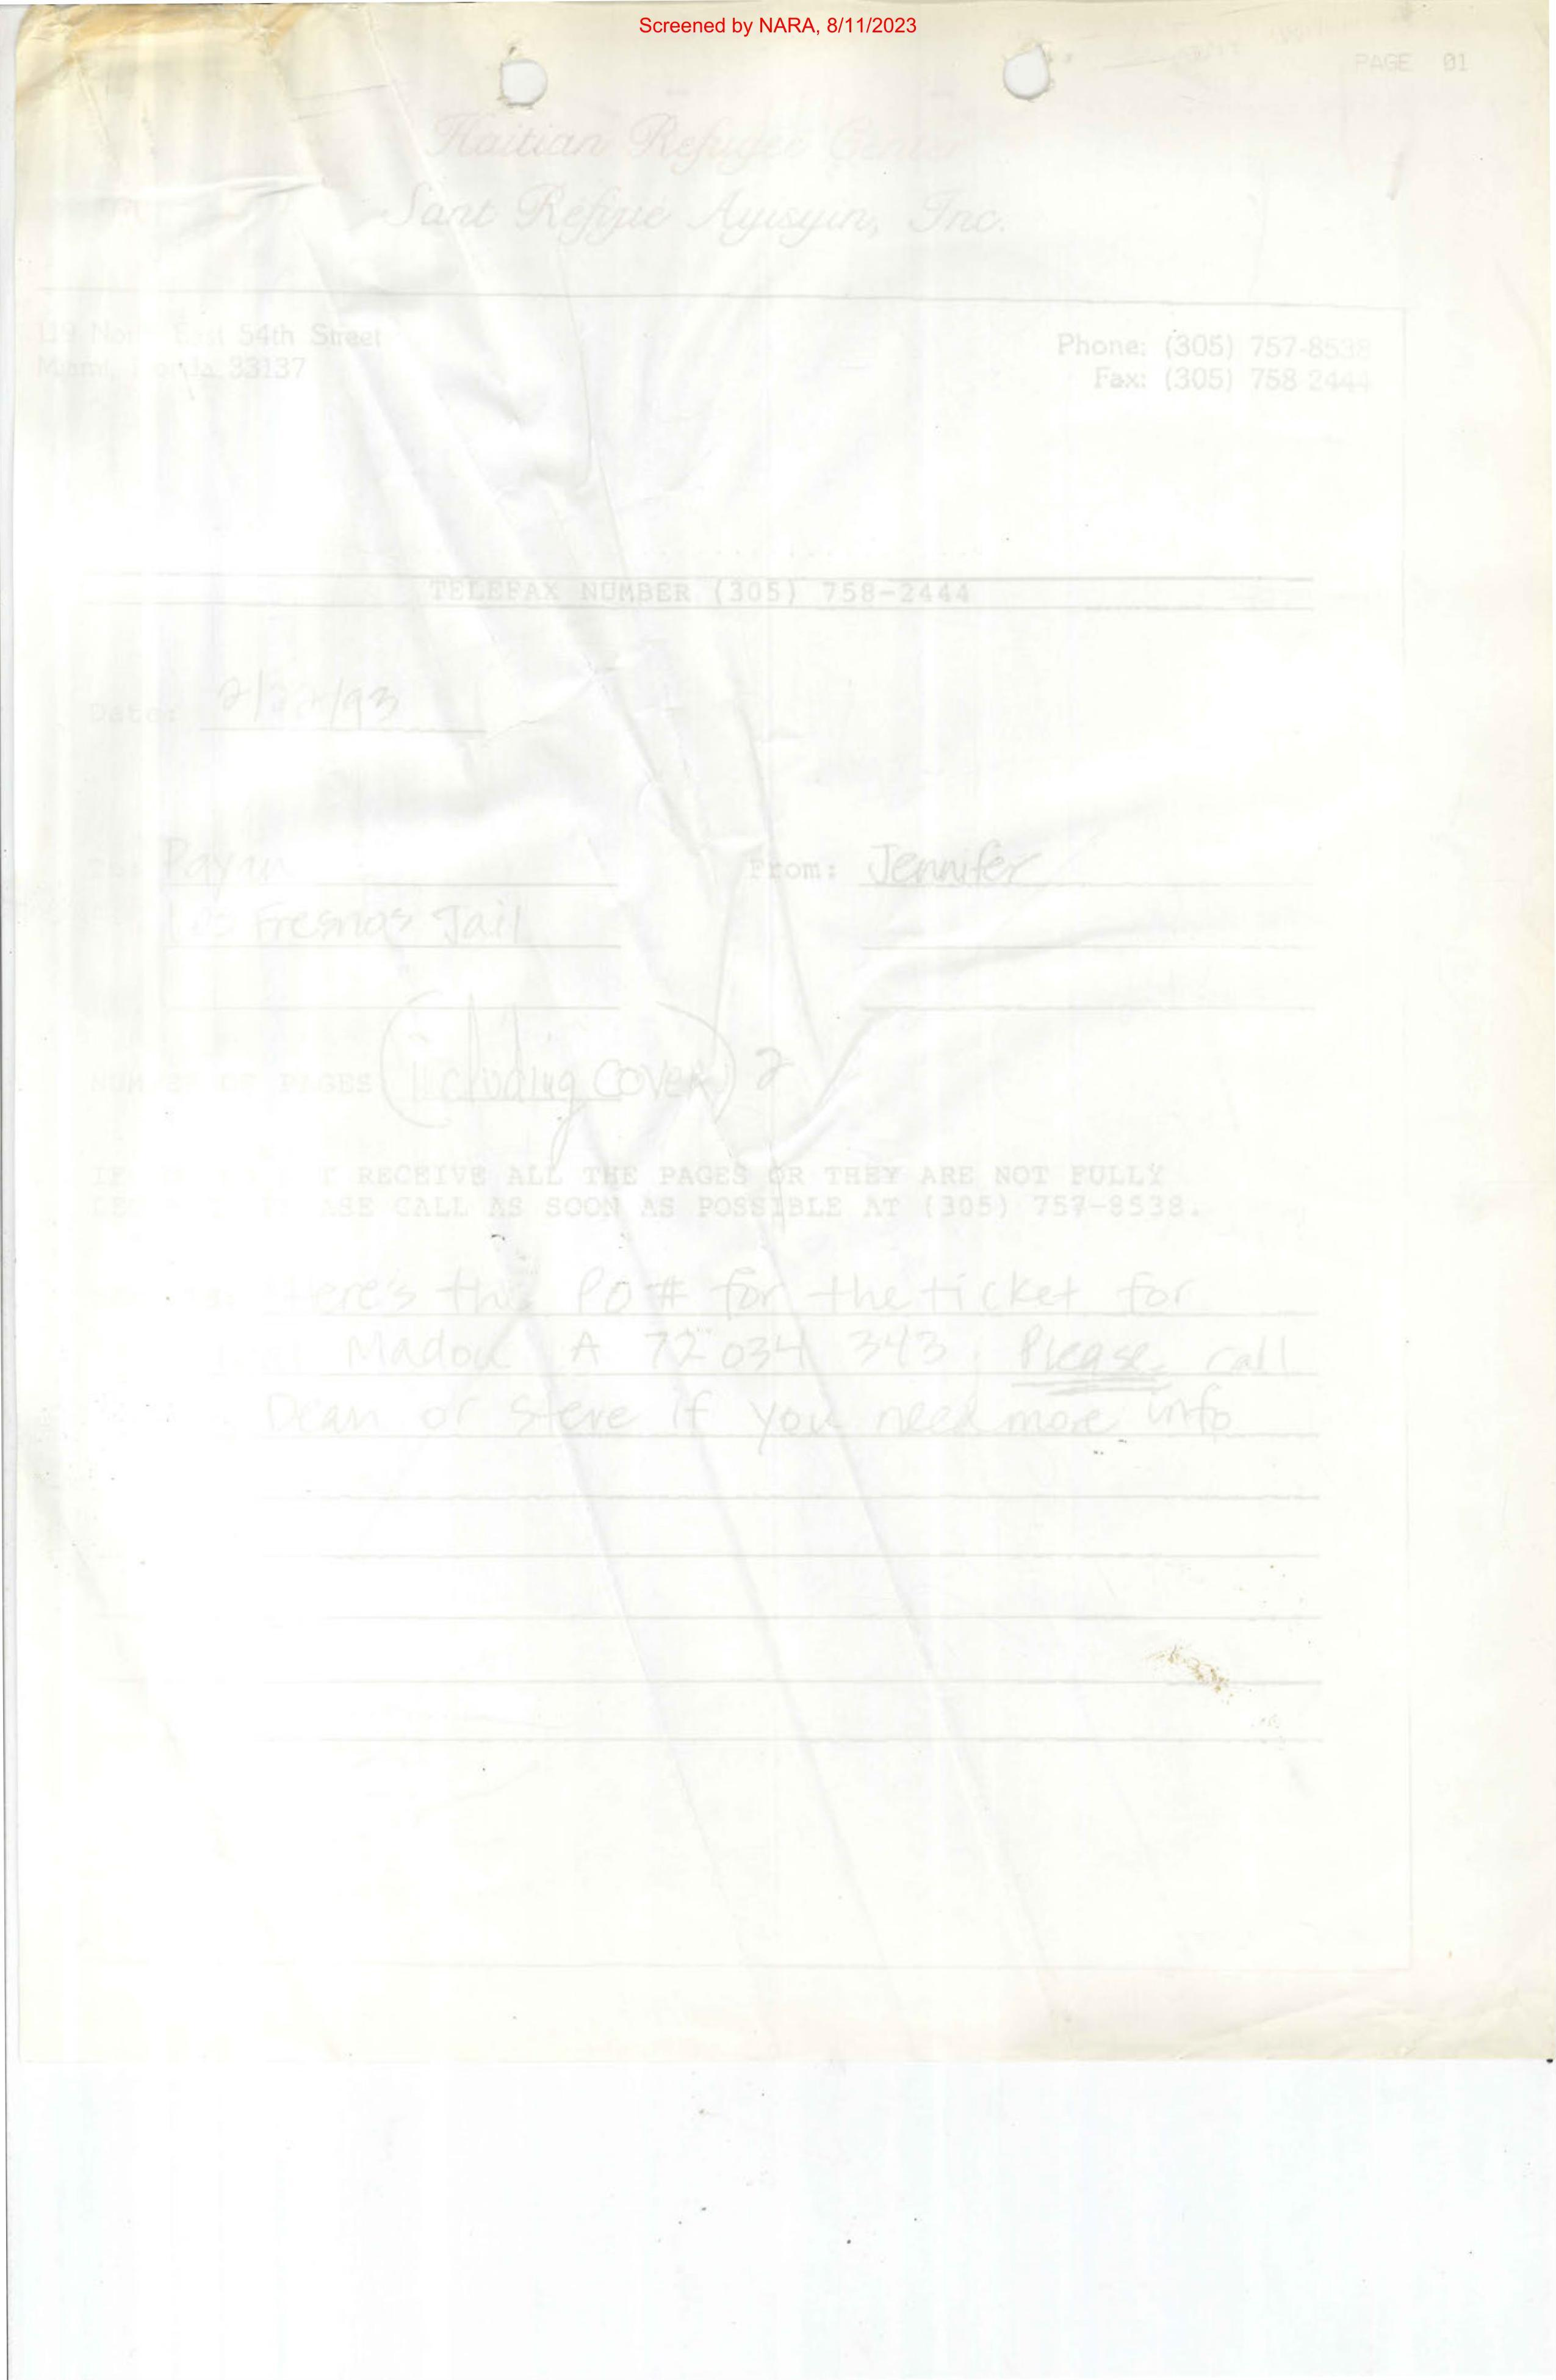 Screened by NARA, 8/11/2023
PAGE 01
Haitian Refugee Center
Sant Refijie Ayisyin, Inc.
54th Street
Phone: (305) 757-8538
33137
Fax: (305) 758 2444
TELEFAX NUMBER (305) 758-2444
Date: 2/22/93
Payan
From: Jennifer
Los Fresnos Jail
NUMBER OF PAGES (including cover) 2
RECEIVE ALL THE PAGES OR THEY ARE NOT FULLY
CALL AS SOON AS POSSIBLE AT (305) 757-8538.
Here's the PO # for the ticket for
Madou A 72 034 343. Please call
Dean or Steve if you need more info